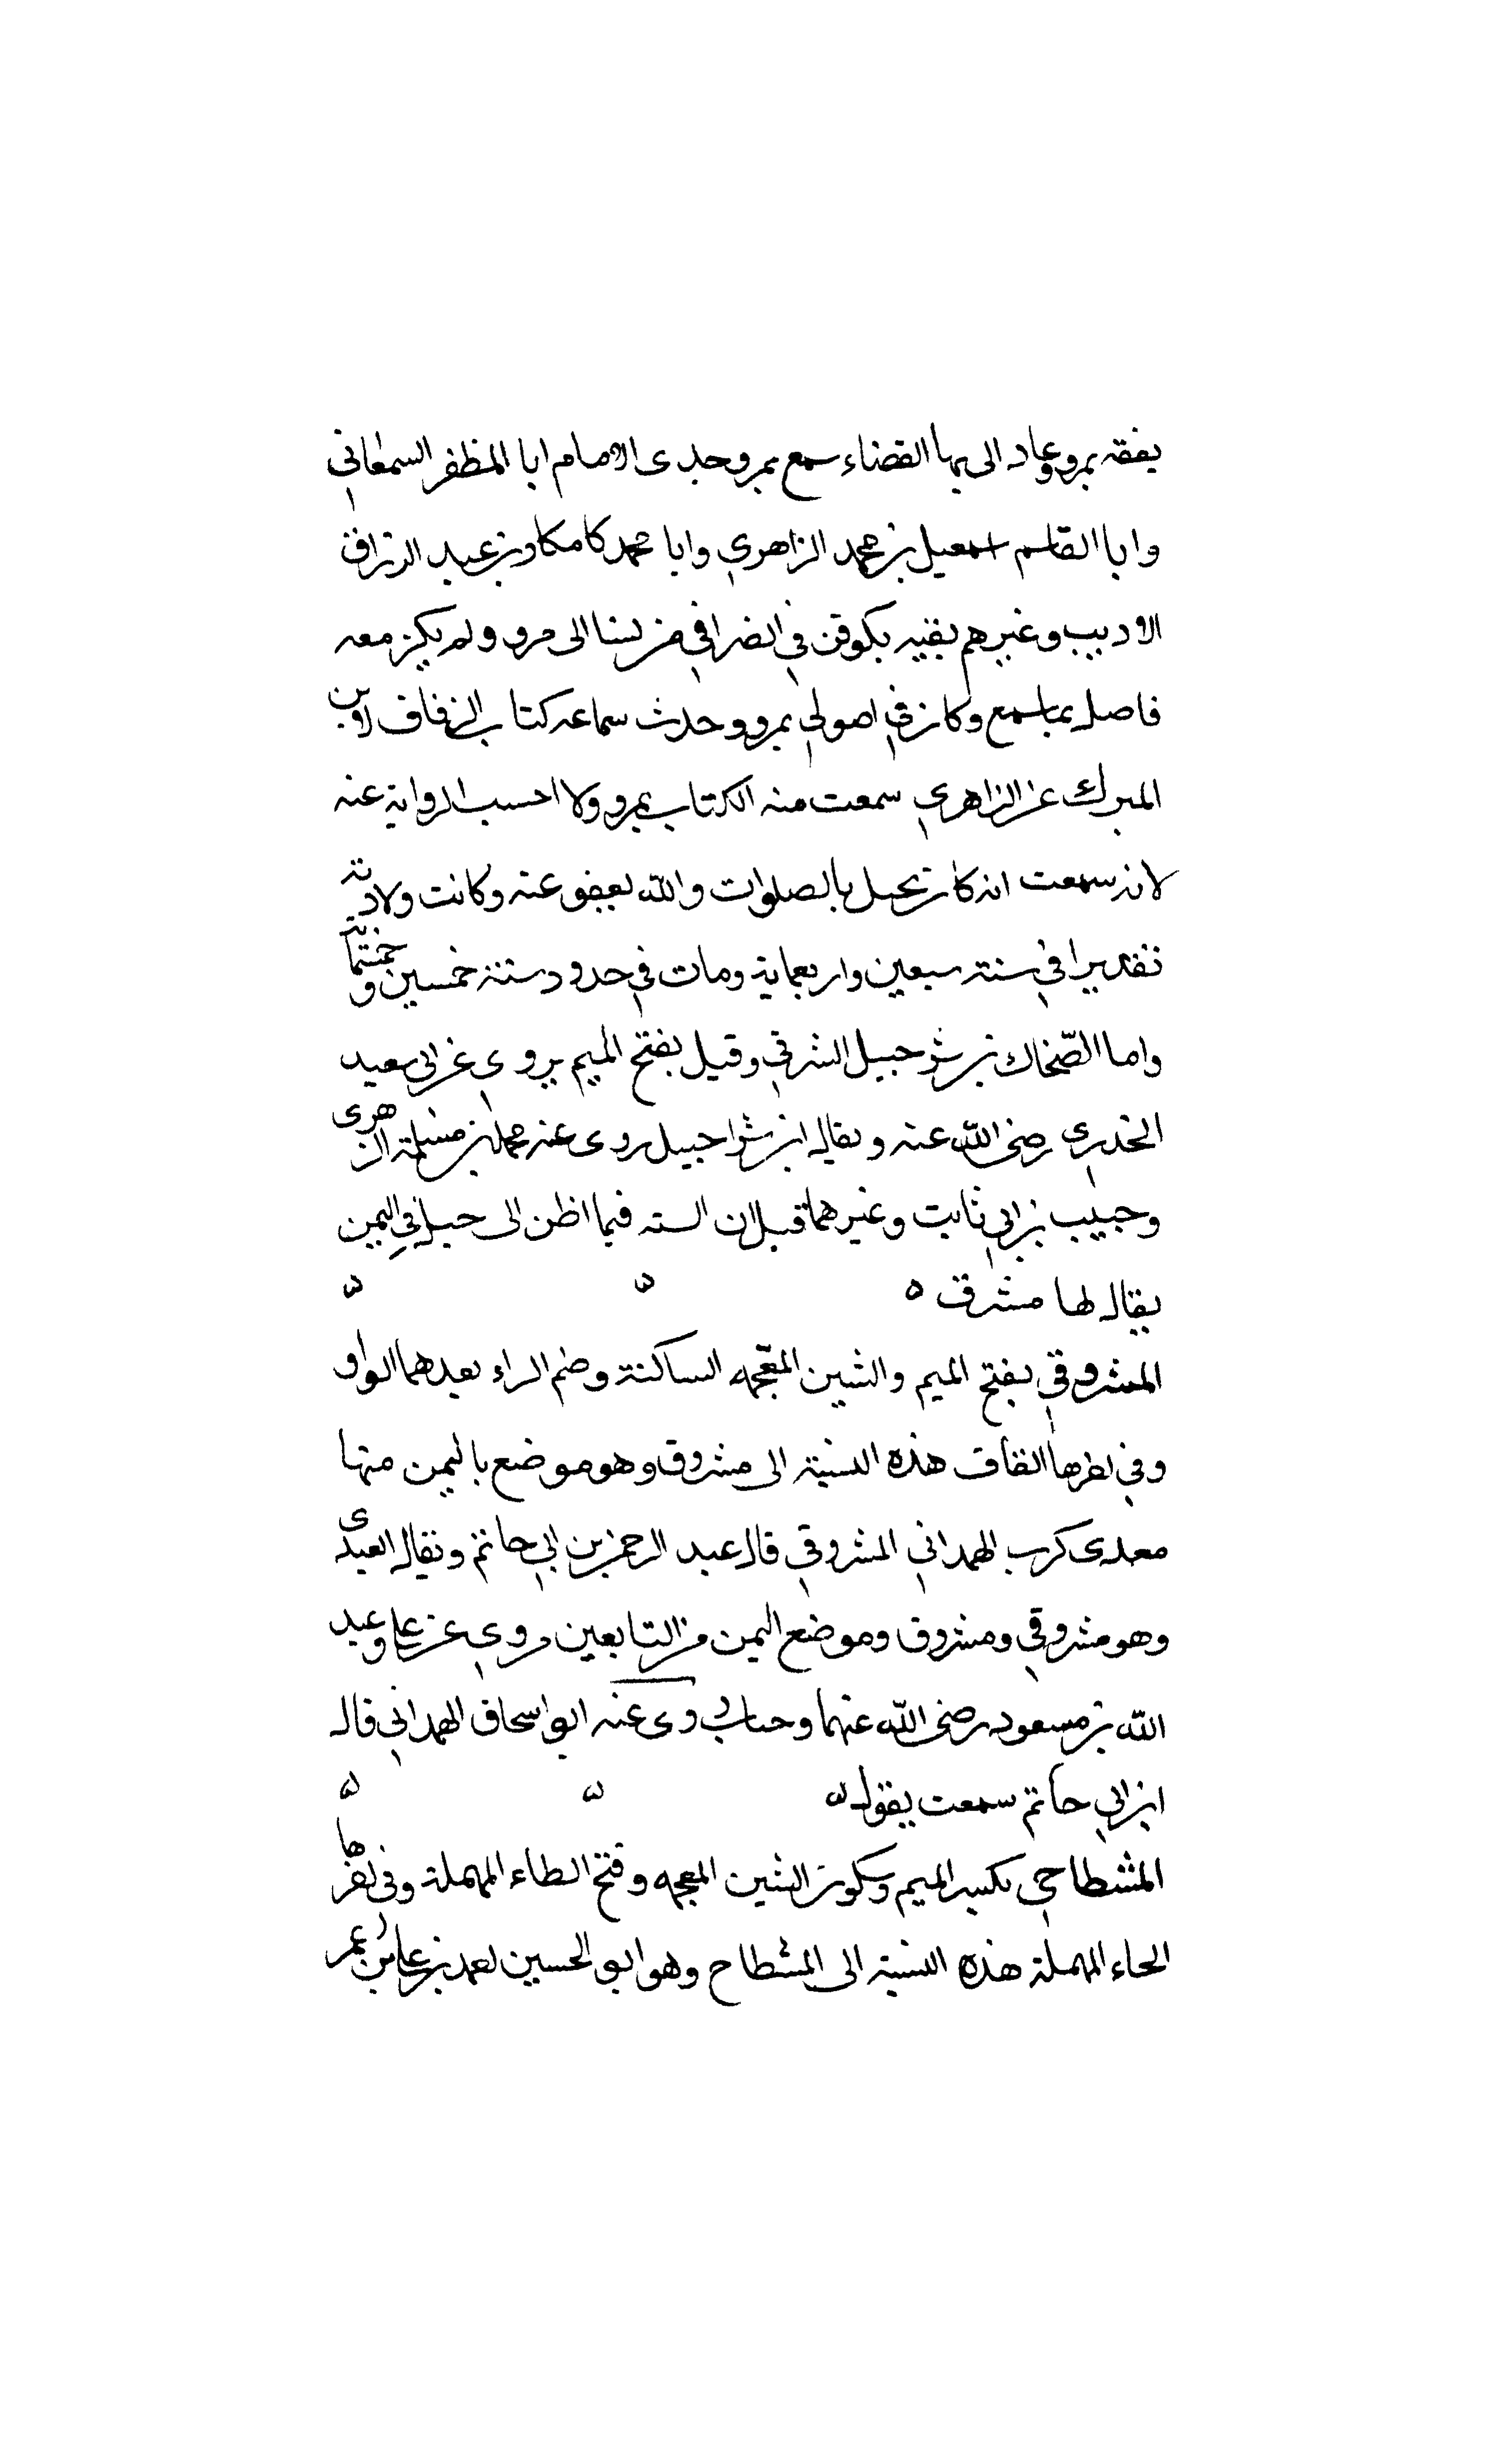 يفقه بمرو وعاد الى بها القضاء سمع بمرو جدى الامام ابا المظفر السمعاني
وابا القاسم اسمعيل بن محمد الزاهري وابا محمد كامكار بن عبد الرزاق
الاديب وغيرهم بقيه بكوفن في انصرافي من نسا الى مرو ولم يكن معه
فاصل بما سمع وكان في اصولي بمرو وحدث سماعه كتاب الزفاف لابن
المبرك عن الزاهري سمعت منه الكتاب بمرو ولا احسب الرواية عنه
لانه سمعت انه كان يخل بالصلوات والله يعفو عنه وكانت ولادته
تقديرا في سنة سبعين واربعماية ومات في حدود سنة خمسين وخمسماية
واما الضحاك بن شرحبيل المشرقي وقيل بفتح الميم يروي عن ابي سعيد
الخدري رضى الله عنه ويقال ابن شراحبيل روى عنه محمد بن مسلمة الزهرى
وحبيب بن ابي ثابت وغيرهما قبل ان السته فيما اظن الى جبل في اليمن
يقال لها مشرق ٥
المشروقي بفتح الميم والشين المعجمه الساكنة وضم الراء بعدهما الواو
وفي اخرها القاف هذه النسبة الى مشروق وهو موضع باليمن منها
معدى كرب الهمداني المشروقي قال عبد الرحمن بن ابي حاتم ويقال العبدى
وهو مشروقي ومشروق وموضع اليمن من التابعين يروي عن على وعبد
الله بن مسعود رضى الله عنهما وخباب روى عنه ابو اسحاق الهمداني قال
ابن ابي حاتم سمعت يقول
المشطاحي بكسر الميم وسكون الشين المعجمه وفتح الطاء المهملة وفي اخرها
الحاء المهملة هذه النسبة الى المشطاح وهو ابو الحسين محمد بن على بن عمر